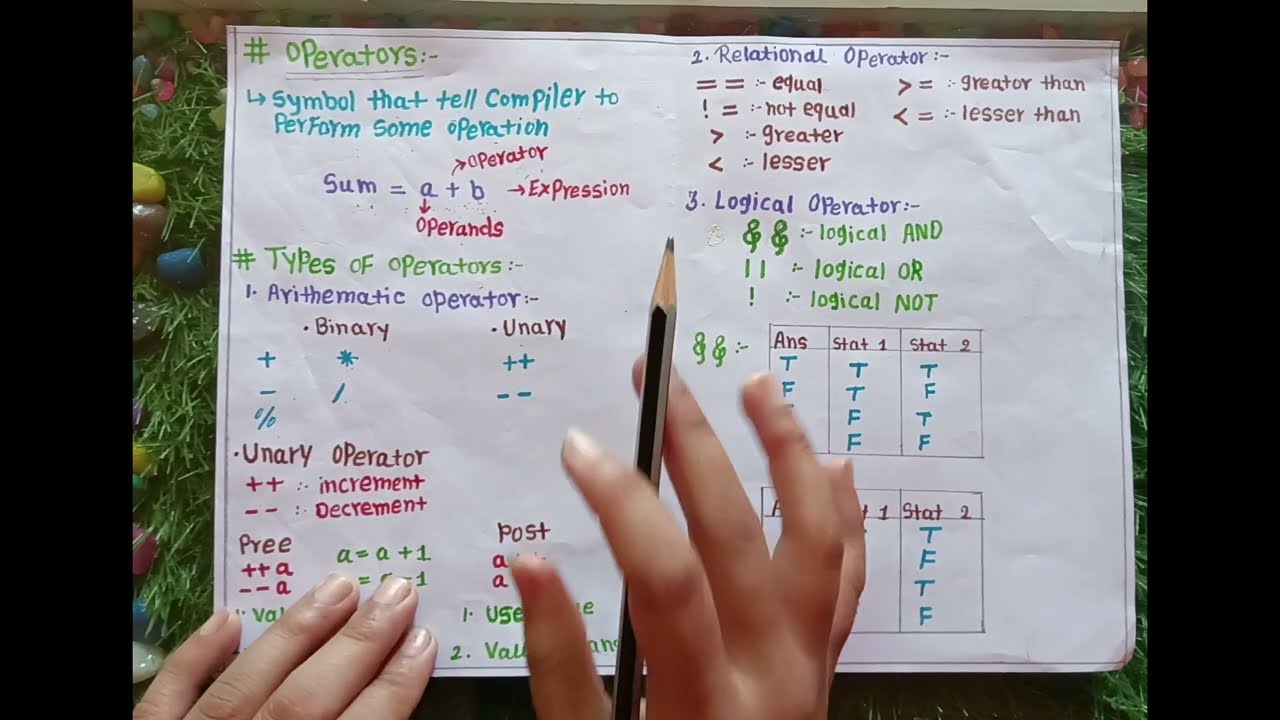 # Operators:-
↳ Symbol that tell Compiler to
Perform Some operation
→ operator
Sum = a + b → Expression
operands
# Types of operators:-
1. Arithematic operator:-
• Binary • Unary
+ * ++
- / --
%
• Unary Operator
++ :- increment
-- :- Decrement
Pree Post
++a a = a + 1 a
--a = 1 a
1. Val 1. Use
2. Val
2. Relational Operator:-
== :- equal >= :- greator than
!= :- not equal <= :- lesser than
> :- greater
< :- lesser
3. Logical Operator:-
&& :- logical AND
|| :- logical OR
! :- logical NOT
&& :-
Ans Stat 1 Stat 2
T T T
F T F
F T
F F
1 Stat 2
T
F
T
F